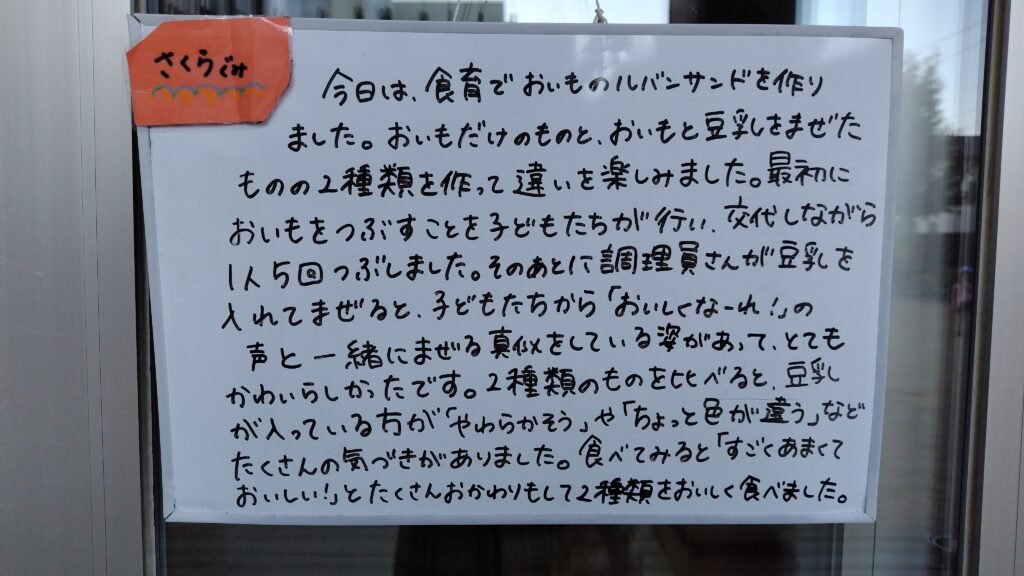 さくらぐみ
今日は、食育でおいものルバンサンドを作り
ました。おいもだけのものと、おいもと豆乳をまぜた
ものの2種類を作って違いを楽しみました。最初に
おいもをつぶすことを子どもたちが行い、交代しながら
1人5回つぶしました。そのあとに調理員さんが豆乳を
入れてまぜると、子どもたちから「おいしくなーれ!」の
声と一緒にまぜる真似をしている姿があって、とても
かわいらしかったです。2種類のものを比べると、豆乳
が入っている方が「やわらかそう」や「ちょっと色が違う」など
たくさんの気づきがありました。食べてみると「すごくあまくて
おいしい!」とたくさんおかわりもして2種類をおいしく食べました。